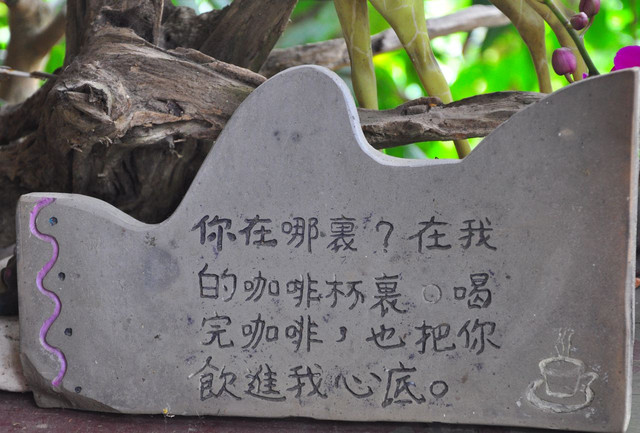 你在哪裏？在我
的咖啡杯裏。喝
完咖啡，也把你
飲進我心底。